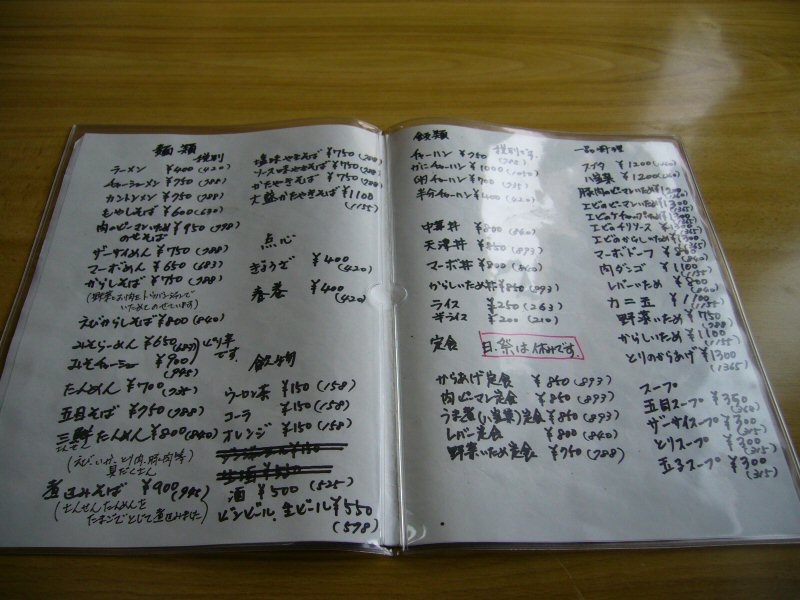 麺類
税別
ラーメン ¥400(420)
チャーシューメン ¥750(788)
カントンメン ¥750(788)
もやしそば ¥600(630)
肉のピーマンいため ¥950(998)
のせそば
ザーサイめん ¥750(788)
マーボめん ¥650(683)
からしそば ¥750(788)
いためてのせています)
えびからしそば ¥800(840)
みそらーめん ¥650(683)
みそチャーシュー ¥900
(945)
たんめん ¥700(735)
五目そば ¥750(788)
三鮮たんめん ¥800(840)
(えび、いか、とり肉、豚肉等
具だくさん
煮込みそば ¥900(945)
(さんせんたんめんを
たまごでとじて煮込みました)
塩味やきそば ¥750(788)
ソースやきそば ¥750(788)
かたやきそば ¥750(788)
大盛かたやきそば ¥1100
(1155)
点心
ぎょうざ ¥400
(420)
春巻 ¥400
(420)
飲物
ウーロン茶 ¥150(158)
コーラ ¥150(158)
オレンジ ¥150(158)
酒 ¥500(525)
ビンビール、生ビール ¥550
(578)
飯類
税別です
チャーハン ¥750
(788)
かにチャーハン ¥1000(1050)
(735)
半分チャーハン ¥400(420)
中華丼 ¥800(840)
天津丼 ¥850(893)
マーボ丼 ¥800(840)
からしいため丼 ¥850(893)
ライス ¥250(263)
半ライス ¥200(210)
定食 日、祭は休みです。
からあげ定食 ¥850(893)
肉ピーマン定食 ¥850(893)
うま煮(八宝菜)定食 ¥850(893)
レバー定食 ¥800(840)
野菜いため定食 ¥750(788)
一品料理
スブタ ¥1200(1260)
八宝菜 ¥1200(1260)
豚肉のピーマンいため
エビのピーマンいため
エビのケチャップ
エビのチリソース
エビのからしいため
マーボドーフ
肉ダンゴ ¥1100
(1155)
レバーいため
カニ玉 ¥1100
(1155)
野菜いため ¥750
(788)
からしいため ¥1100
(1155)
とりのからあげ ¥1300
(1365)
スープ
五目スープ ¥350
ザーサイスープ ¥300
(315)
とりスープ ¥300
(315)
玉子スープ ¥300
(315)